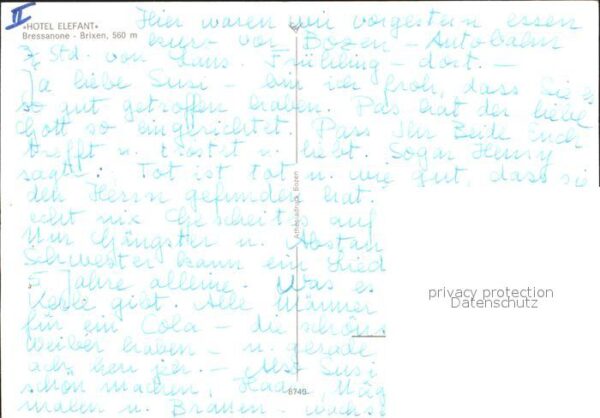 II
»HOTEL ELEFANT«
Bressanone - Brixen, 560 m
Hier waren wir vorgestern essen
kurz vor Bozen - Autobahn
3 Std. von uns. Frühling - dort. -
Ja liebe Susi - bin ich froh, dass Sie es
so gut getroffen haben. Das hat der liebe
Gott so eingerichtet. Dass Ihr Beide Euch
trefft u. tröstet u. liebt. Sogar Henry
sagt. Tot ist tot u. wie gut, dass sie
den Herrn gefunden hat.
echt nix Gescheits auf
Nur Gängster u. Abstan
Schwester kann ein Lied
5 Jahre alleine. Was es
Kerle gibt. Alle Männer
für ein Cola - die schöns
weiber haben - u. gerade
ach, herr je. - Susi
schön machen, Haar, Näg
malen u. Brauen -
Athesiadruck, Bozen
8740
privacy protection
Datenschutz